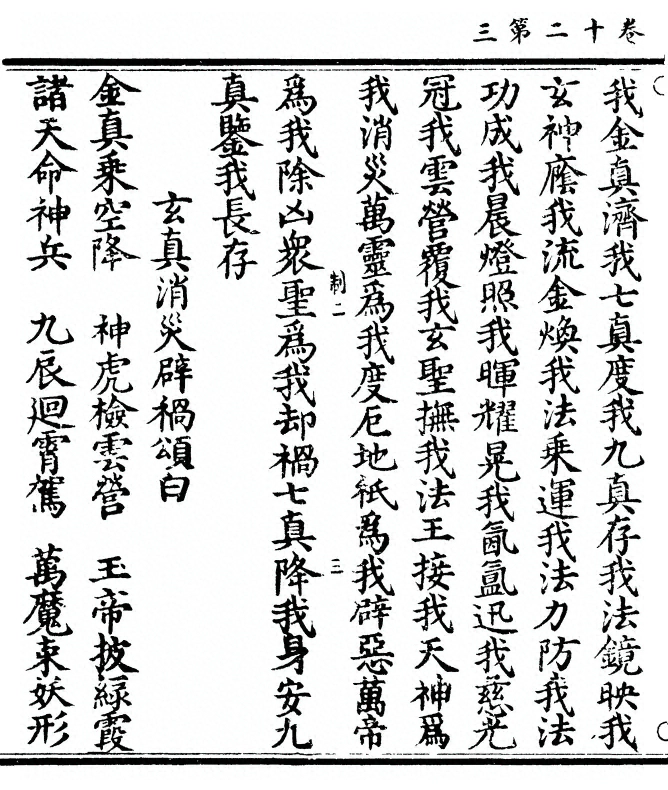 卷十二第三
我金真濟我七真度我九真存我法鏡映我
玄神廕我流金煥我法乘運我法力防我法
功成我晨燈照我暉耀晃我氤氳迅我慈光
冠我雲營覆我玄聖撫我法王接我天神為
我消災萬靈為我度厄地祇為我辟惡萬帝
制二
三
為我除凶眾聖為我却禍七真降我身安九
真鑒我長存
玄真消災辟禍頌曰
金真乘空降　神虎檢雲營　玉帝披綠霞
諸天命神兵　九辰迴霄駕　萬魔束妖形